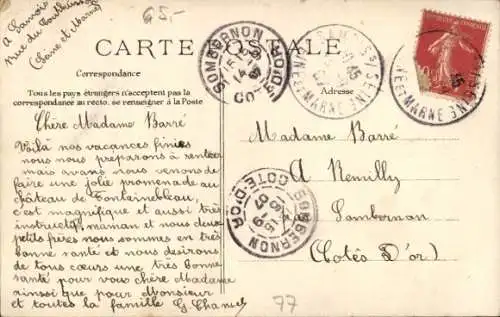 A Samois
Rue du
(Seine et Marne)
65.-
CARTE POSTALE
Correspondance
Tous les pays étrangers n'acceptent pas la
correspondance au recto, se renseigner à la Poste
Adresse
Chère Madame Barré
Voilà nos vacances finies
nous nous préparons à rentrer
mais avant nous venons de
faire une jolie promenade au
château de Fontainebleau,
c'est magnifique et aussi très
instructif, maman et nous deux
petits frères nous sommes en très
bonne santé et nous desirons
de tous cœurs une très bonne
santé pour vous chère Madame
ainsi que pour Monsieur
et toutes la famille G.
Madame Barré
A Remilly
Sombernon
(Côtes D'or)
SOMBERNON
SEINE-ET-MARNE
SOMBERNON
COTE-D'OR
77